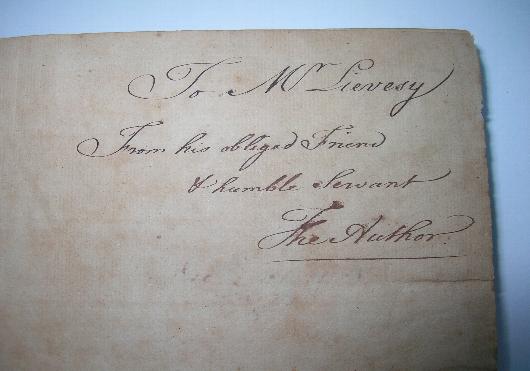 To Mr Lievesy
From his obliged Friend
& humble Servant
The Author.